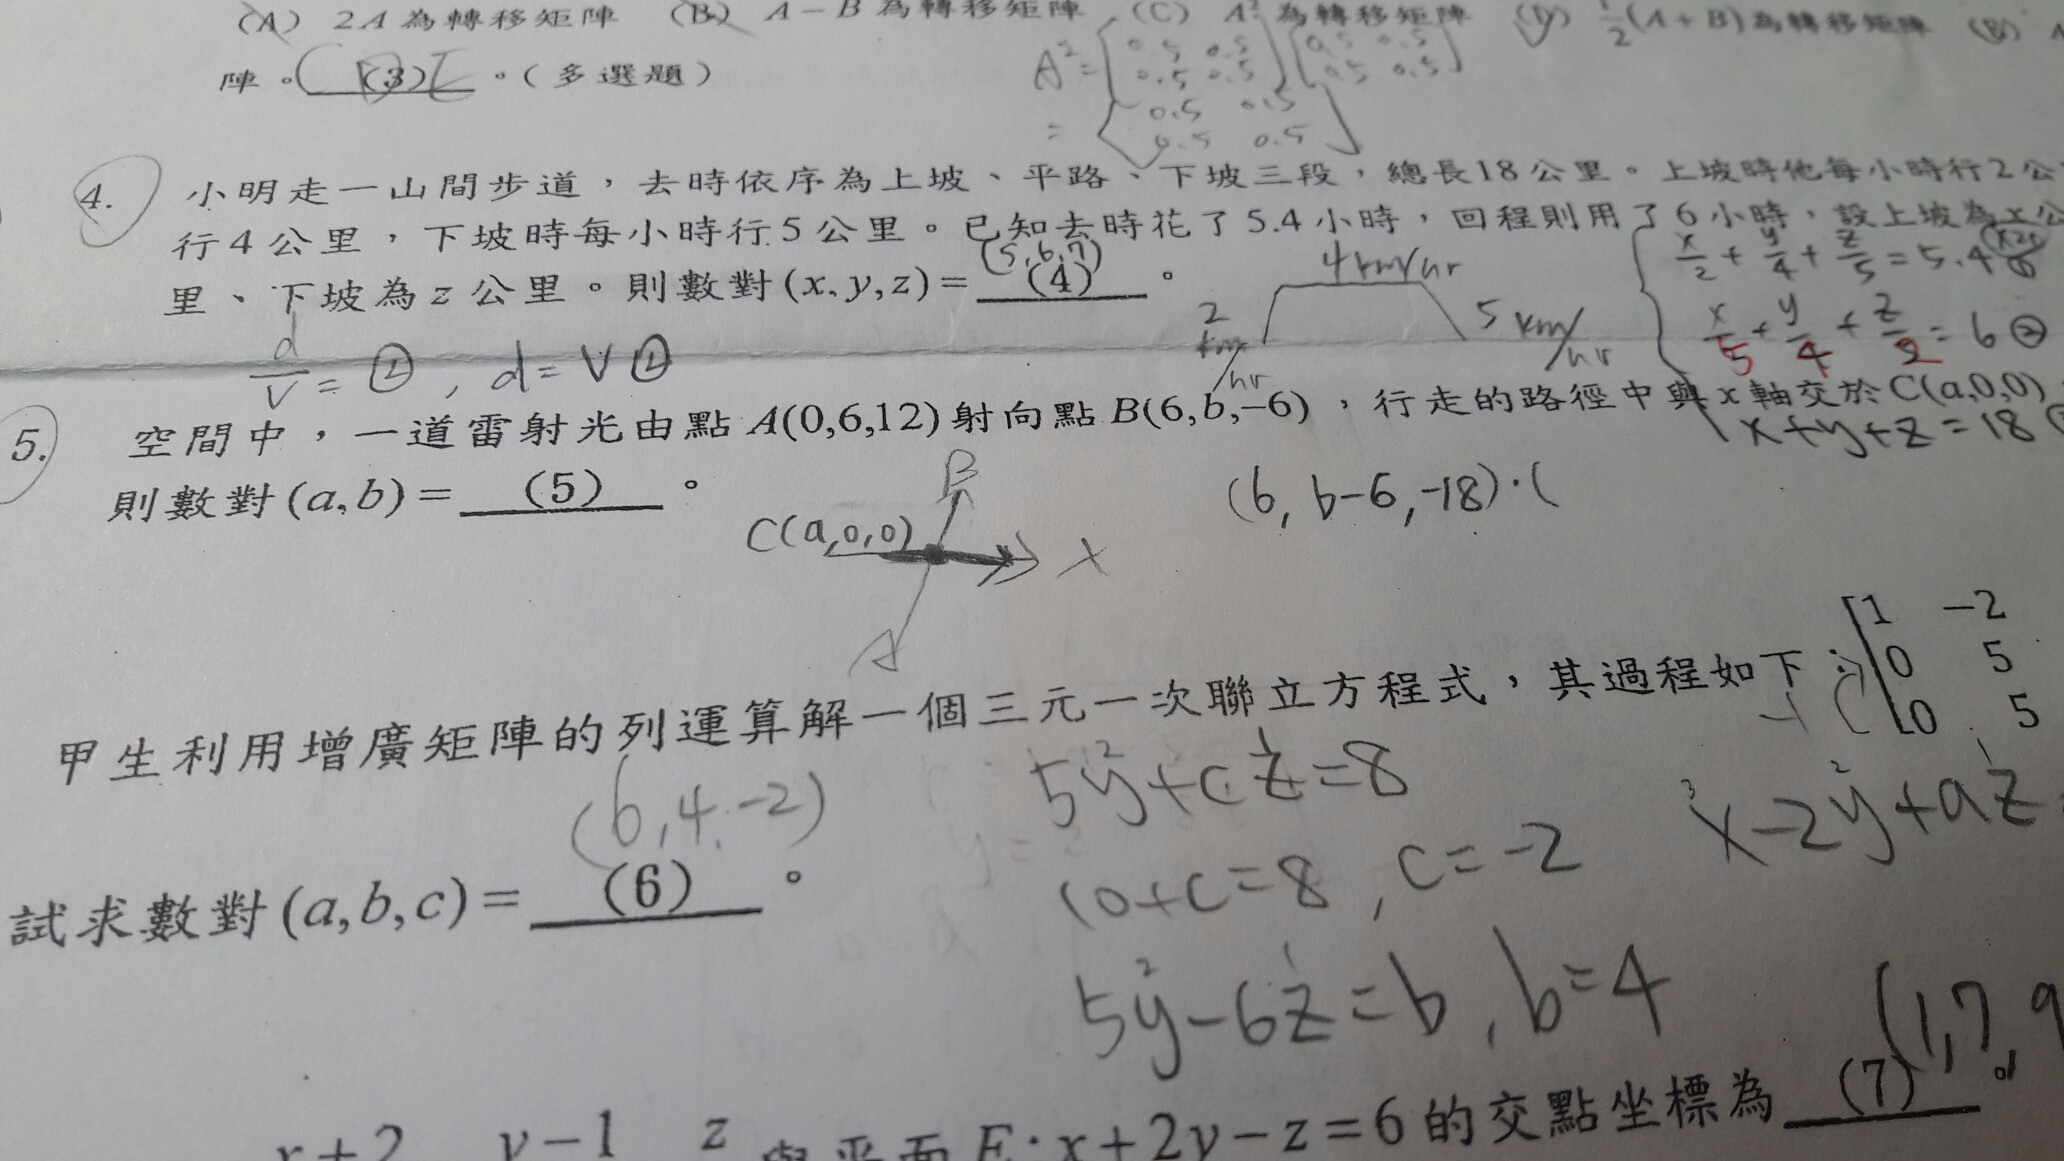 (A) 2A 為轉移矩陣 (B) A－B 為轉移矩陣 (C) A² 為轉移矩陣 (D) 1/2(A+B)為轉移矩陣 (E)
陣。(3)。(多選題)
A²=[0.5 0.5
0.5 0.5][0.5 0.5
0.5 0.5]
=[0.5 0.5
0.5 0.5]
4. 小明走一山間步道，去時依序為上坡、平路、下坡三段，總長18公里。上坡時他每小時行2公
行4公里，下坡時每小時行5公里。已知去時花了5.4小時，回程則用了6小時，設上坡為x公
里、下坡為z公里。則數對(x,y,z)=(4)。
(5,6,7)
4km/hr
2 km/hr
5 km/hr
x/2+y/4+z/5=5.4
x/5+y/4+z/2=6②
x+y+z=18
d/v= , d=v
5. 空間中，一道雷射光由點A(0,6,12)射向點B(6,b,−6)，行走的路徑中與x軸交於C(a,0,0)
則數對(a,b)=(5)。
B
C(a,0,0)
X
A
(6, b-6,-18)·(
甲生利用增廣矩陣的列運算解一個三元一次聯立方程式，其過程如下：[1 -2
0 5
0 5
(6,4,-2)
5y+cz=8
x-2y+az
10+c=8, c=-2
試求數對(a,b,c)=(6)。
5y-6z=b, b=4
(1,7,9
y−1 z 與平面E:x+2y−z=6的交點坐標為(7)。